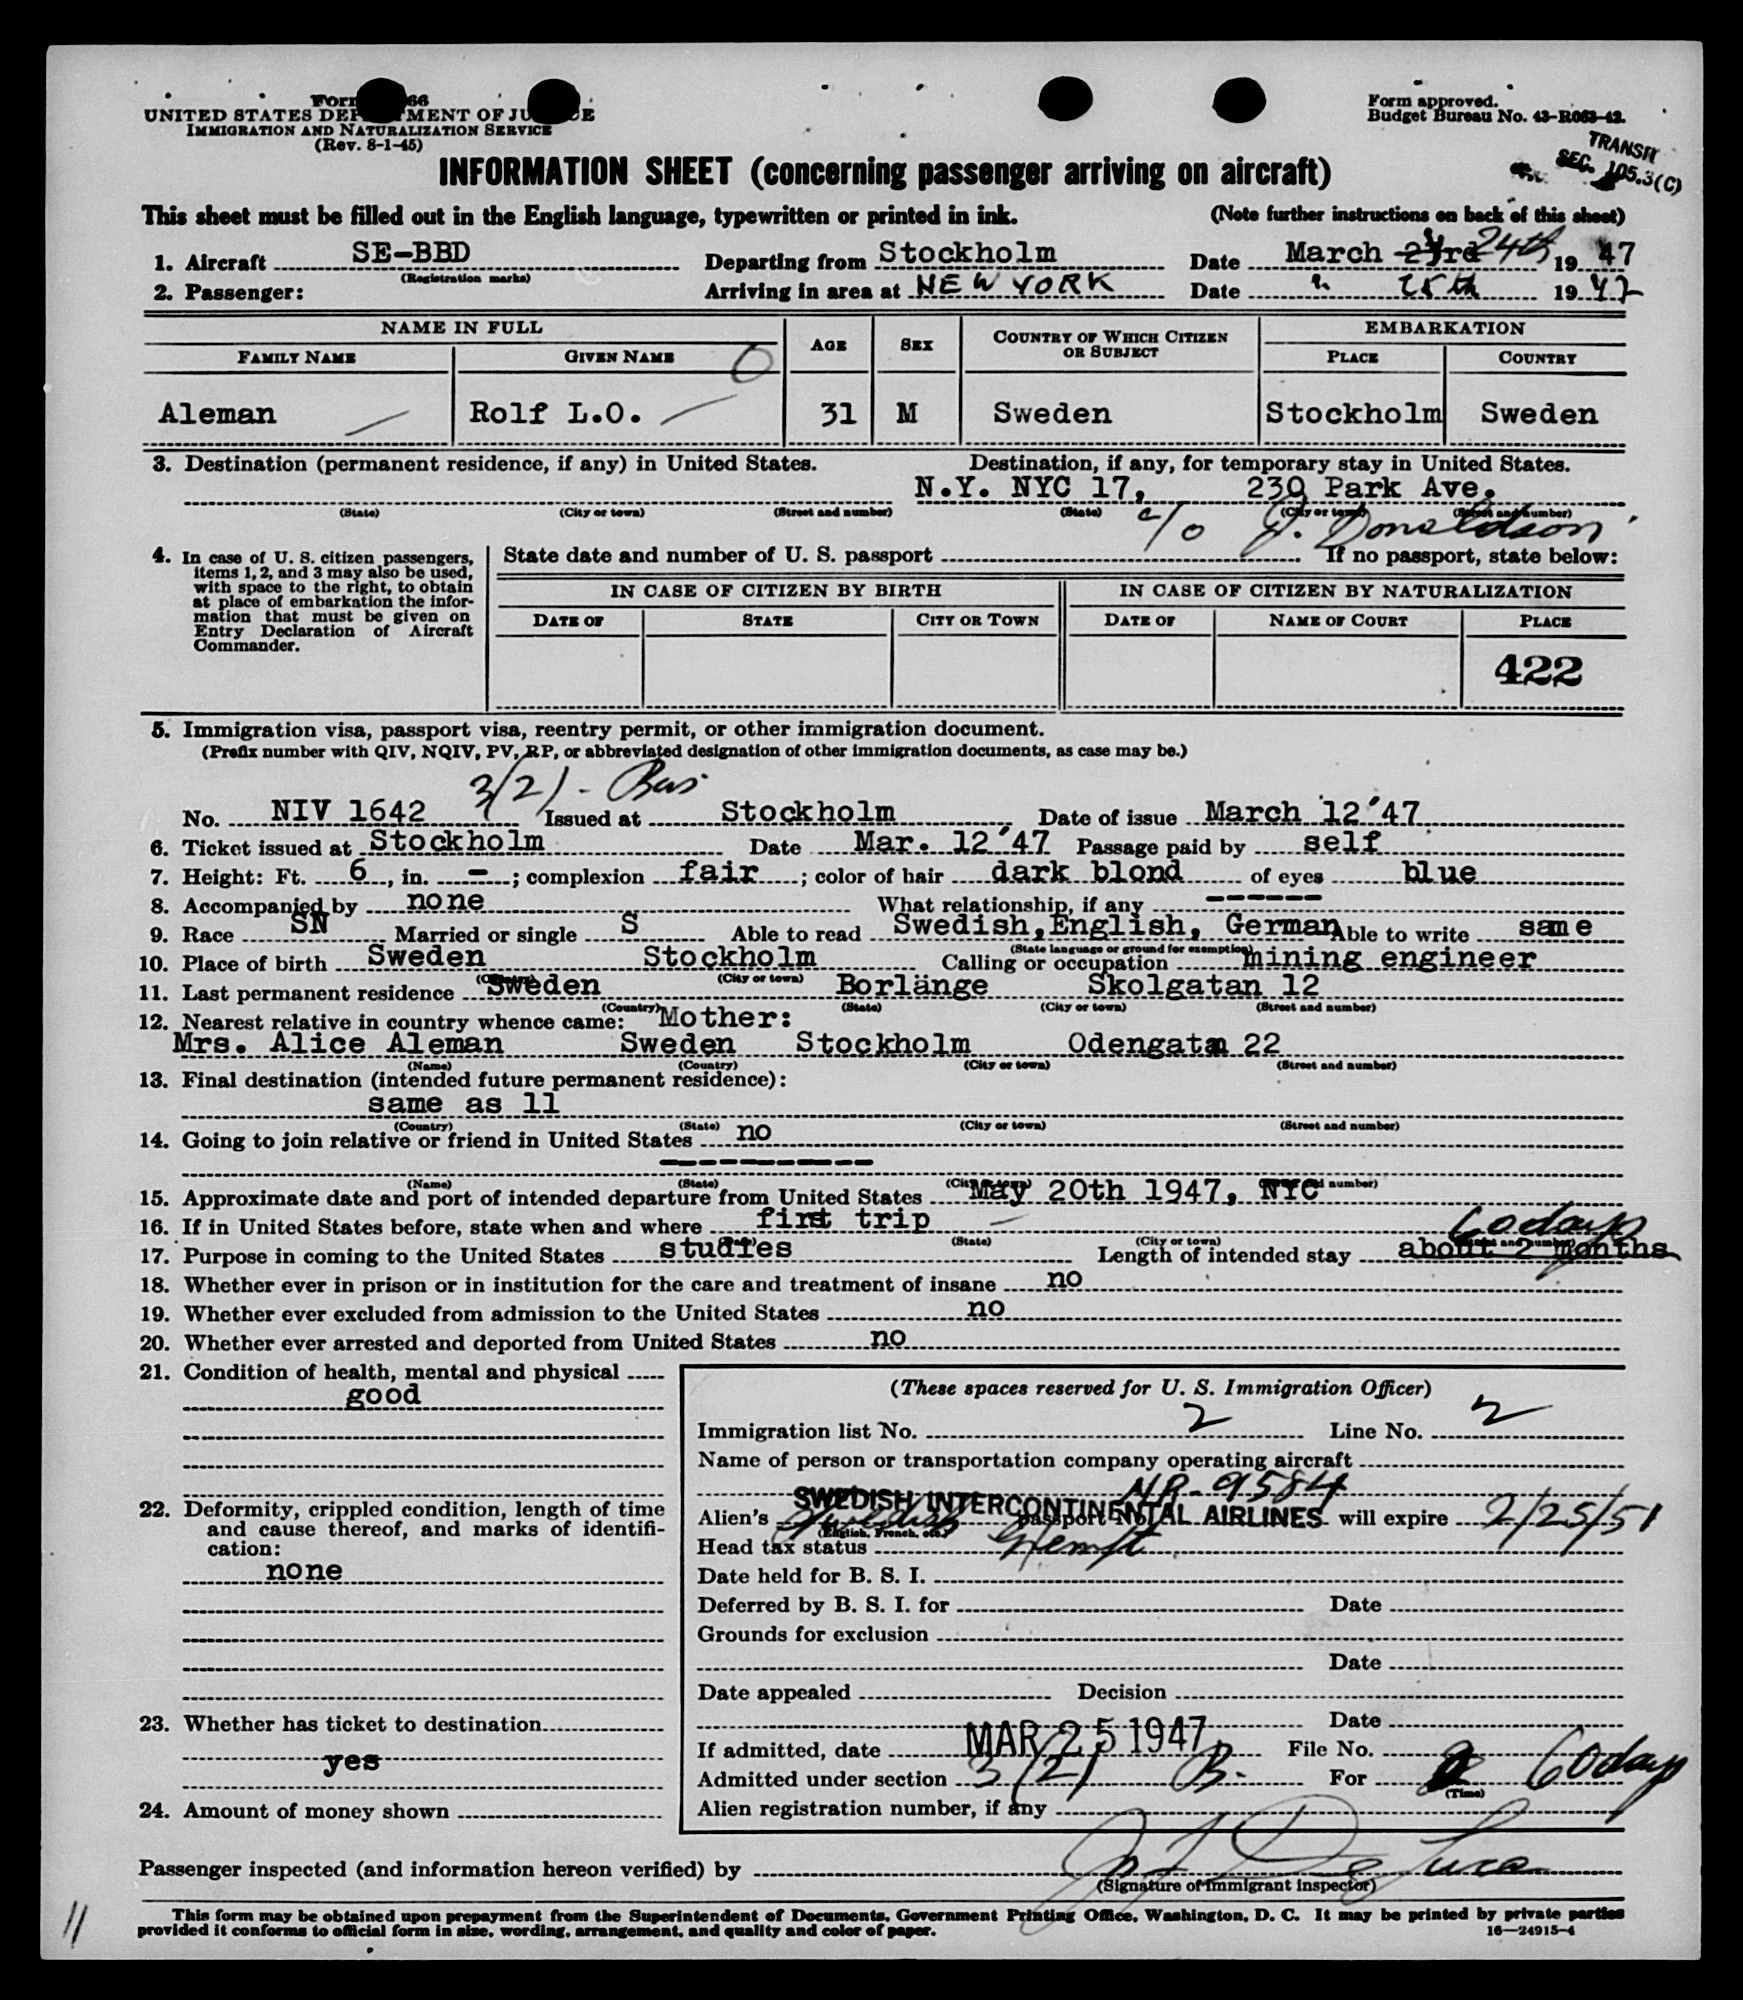 Form 66
UNITED STATES DEPARTMENT OF JUSTICE
IMMIGRATION AND NATURALIZATION SERVICE
(Rev. 8-1-45)
Form approved.
Budget Bureau No. 43-R063-42.
TRANSIT
SEC. 105.3(C)
INFORMATION SHEET (concerning passenger arriving on aircraft)
This sheet must be filled out in the English language, typewritten or printed in ink. (Note further instructions on back of this sheet)
1. Aircraft SE-BBD Departing from Stockholm Date March 23rd 24th 1947
(Registration marks)
2. Passenger: Arriving in area at NEW YORK Date " 25th 1947
NAME IN FULL EMBARKATION
FAMILY NAME GIVEN NAME AGE SEX COUNTRY OF WHICH CITIZEN OR SUBJECT PLACE COUNTRY
Aleman Rolf L.O. 31 M Sweden Stockholm Sweden
3. Destination (permanent residence, if any) in United States. Destination, if any, for temporary stay in United States.
N.Y. NYC 17, 230 Park Ave.
(State) (City or town) (Street and number) (State) (City or town) (Street and number)
c/o J. Donaldson
4. In case of U. S. citizen passengers, items 1, 2, and 3 may also be used, with space to the right, to obtain at place of embarkation the information that must be given on Entry Declaration of Aircraft Commander.
State date and number of U. S. passport If no passport, state below:
IN CASE OF CITIZEN BY BIRTH IN CASE OF CITIZEN BY NATURALIZATION
DATE OF STATE CITY OR TOWN DATE OF NAME OF COURT PLACE
422
5. Immigration visa, passport visa, reentry permit, or other immigration document.
(Prefix number with QIV, NQIV, PV, RP, or abbreviated designation of other immigration documents, as case may be.)
3/21 - Bus
No. NIV 1642 Issued at Stockholm Date of issue March 12'47
6. Ticket issued at Stockholm Date Mar. 12'47 Passage paid by self
7. Height: Ft. 6, in. -; complexion fair; color of hair dark blond of eyes blue
8. Accompanied by none What relationship, if any ------
9. Race SN Married or single S Able to read Swedish, English, German Able to write same
(State language or ground for exemption)
10. Place of birth Sweden Stockholm Calling or occupation mining engineer
(Country) (City or town)
11. Last permanent residence Sweden Borlänge Skolgatan 12
(Country) (State) (City or town) (Street and number)
12. Nearest relative in country whence came: Mother:
Mrs. Alice Aleman Sweden Stockholm Odengatan 22
(Name) (Country) (City or town) (Street and number)
13. Final destination (intended future permanent residence):
same as 11
(Country) (State) (City or town) (Street and number)
14. Going to join relative or friend in United States no
-----------
(Name) (State) (City or town) (Street and number)
15. Approximate date and port of intended departure from United States May 20th 1947, NYC
16. If in United States before, state when and where first trip
(Date) (State) (City or town) (Street and number)
60 days
17. Purpose in coming to the United States studies Length of intended stay about 2 months
18. Whether ever in prison or in institution for the care and treatment of insane no
19. Whether ever excluded from admission to the United States no
20. Whether ever arrested and deported from United States no
21. Condition of health, mental and physical
good
22. Deformity, crippled condition, length of time and cause thereof, and marks of identification:
none
23. Whether has ticket to destination
yes
24. Amount of money shown
(These spaces reserved for U. S. Immigration Officer)
Immigration list No. 2 Line No. 2
Name of person or transportation company operating aircraft
SWEDISH INTERCONTINENTAL AIRLINES
NR-9584
Alien's Swedish passport No. will expire 2/25/51
(English, French, etc.)
Head tax status Exempt
Date held for B. S. I.
Deferred by B. S. I. for Date
Grounds for exclusion
Date
Date appealed Decision
Date
If admitted, date MAR 25 1947 File No.
Admitted under section 3/21 B. For 60 days
(Time)
Alien registration number, if any
Passenger inspected (and information hereon verified) by
(Signature of immigrant inspector)
This form may be obtained upon prepayment from the Superintendent of Documents, Government Printing Office, Washington, D. C. It may be printed by private parties
provided it conforms to official form in size, wording, arrangement, and quality and color of paper. 16—24915-4
11